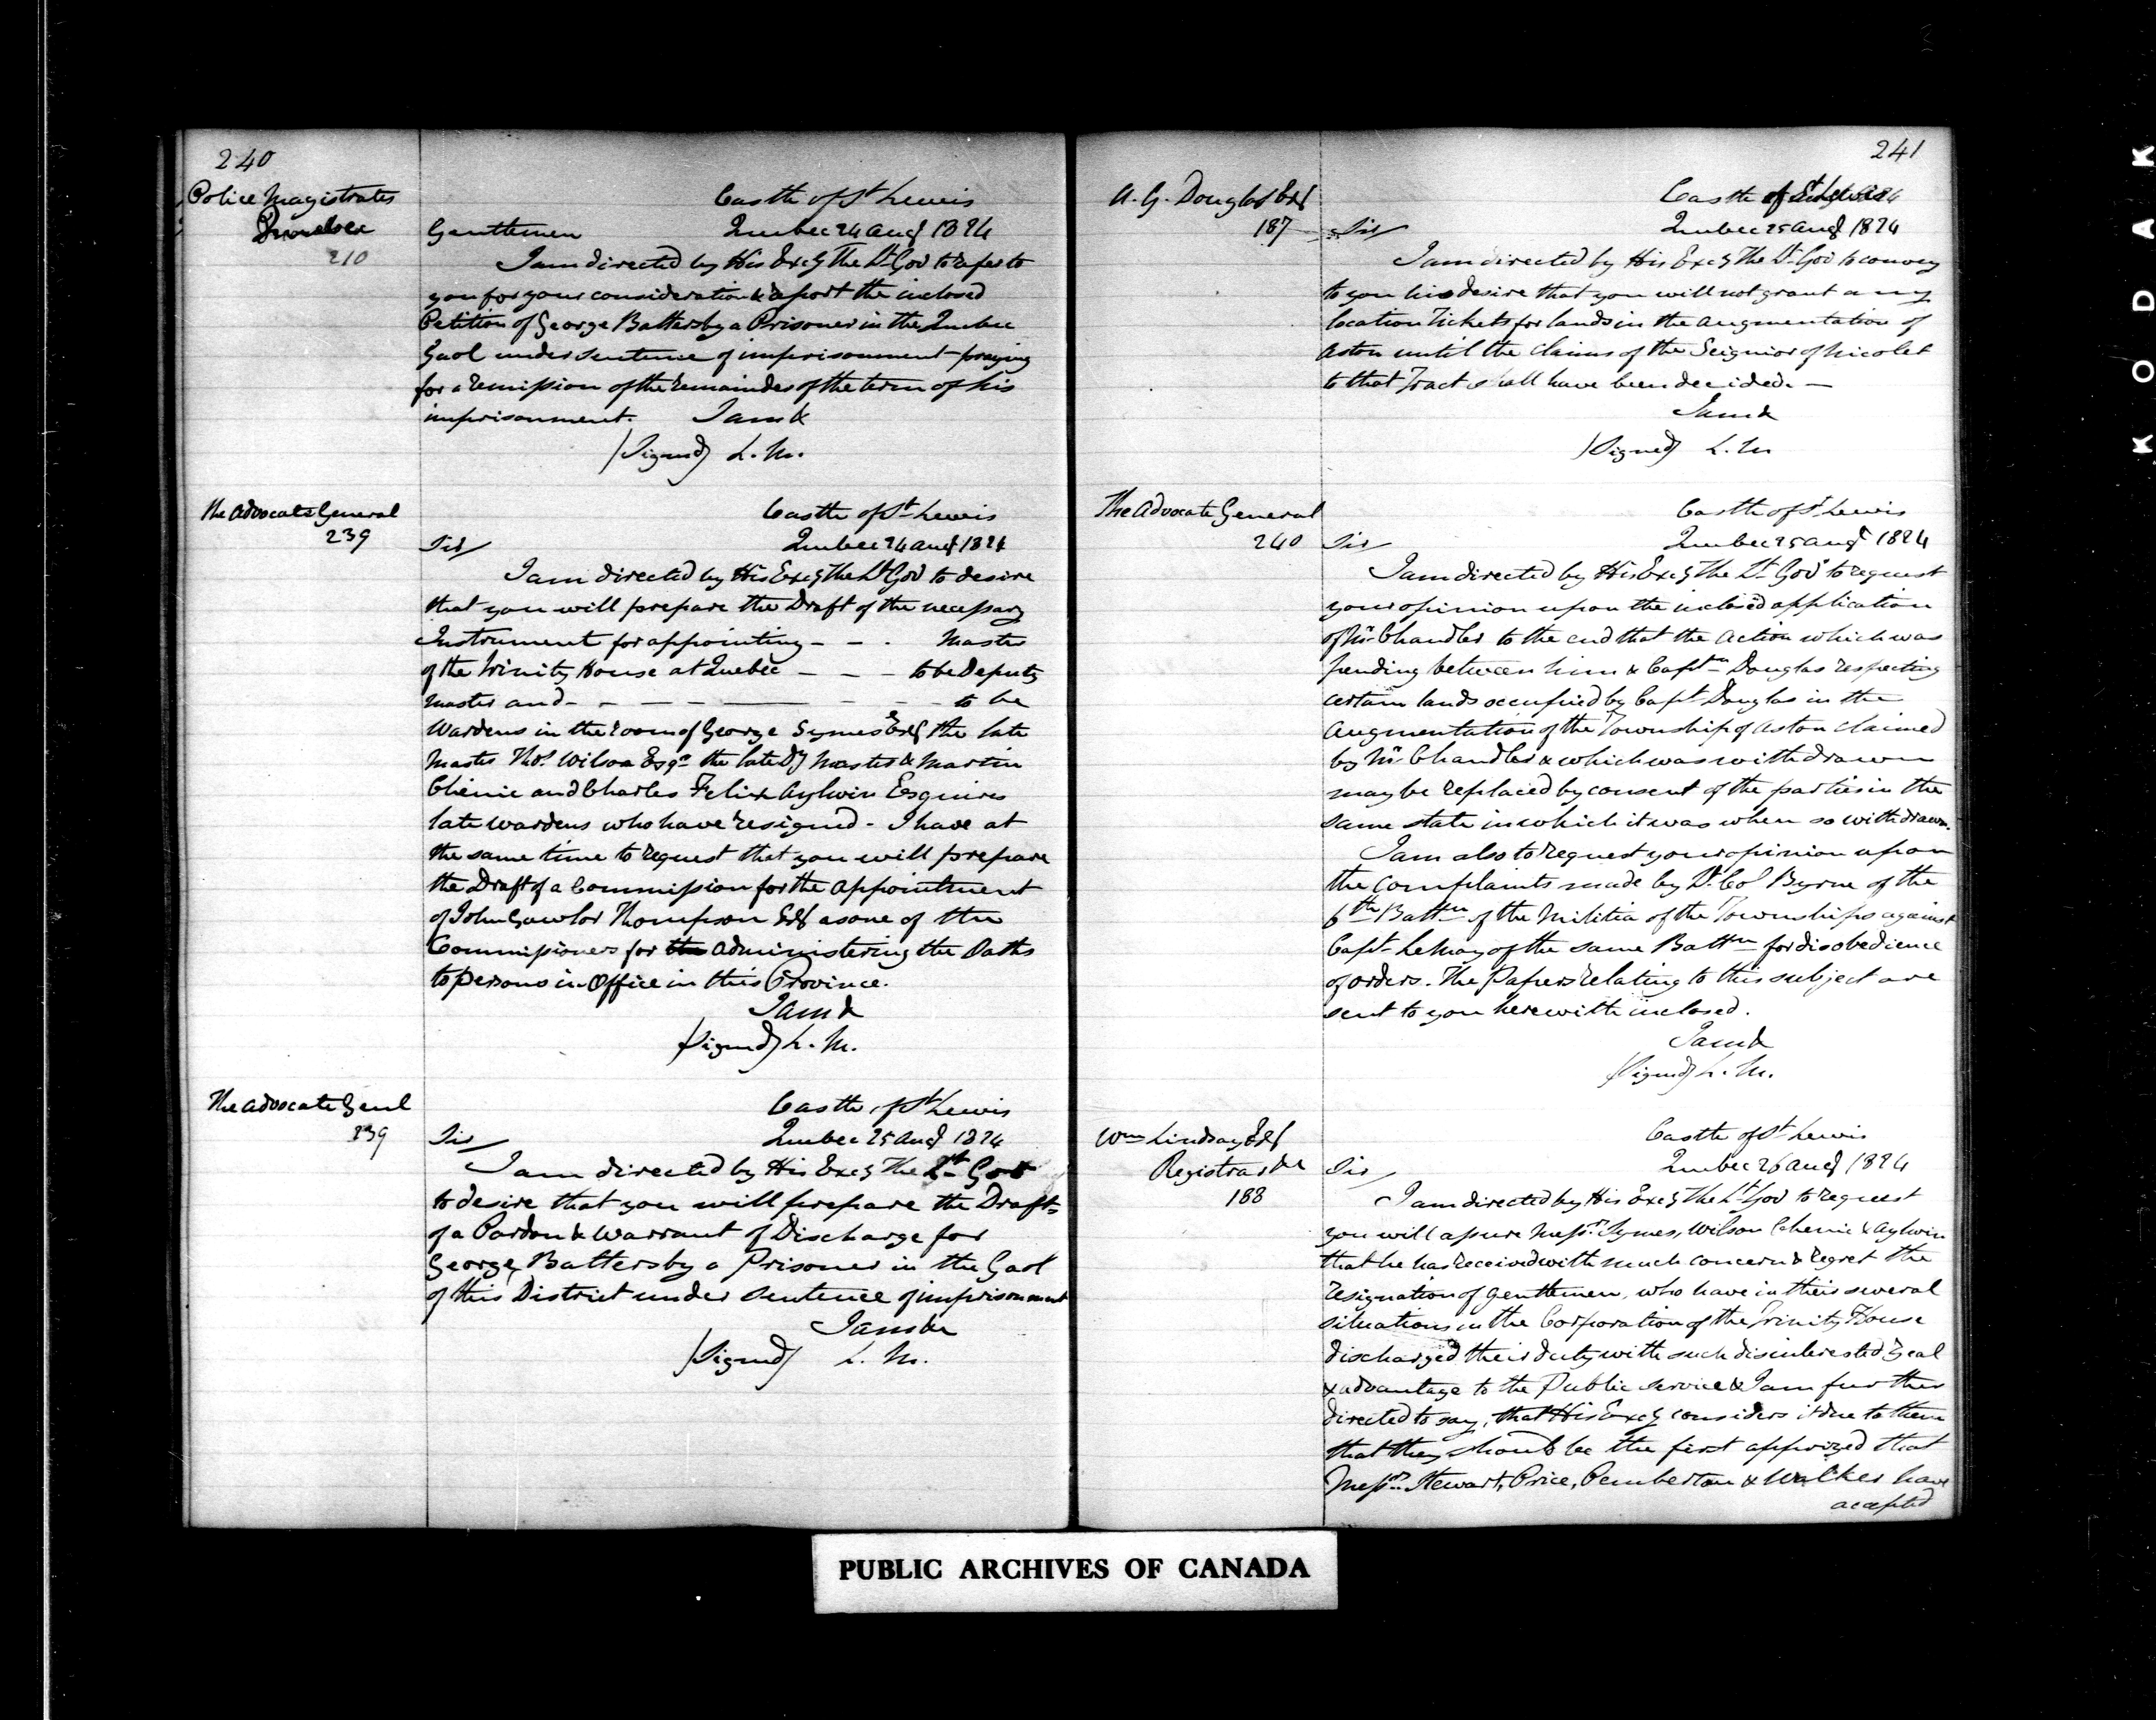 240
Police Magistrates
Quebec
210
Castle of St Lewis
Gentlemen Quebec 24 Augt 1824
I am directed by His Excy The Lt Gov to refer to
you for your consideration & report the inclosed
Petition of George Battersby a Prisoner in the Quebec
Gaol under sentence of imprisonment praying
for a remission of the remainder of the term of his
imprisonment. I am &
(Signed) L. M.
The Advocate General
239
Castle of St Lewis
Sir/ Quebec 24 Augt 1824
I am directed by His Excy The Lt Gov to desire
that you will prepare the Draft of the necessary
Instrument for appointing - - . Master
of the Trinity House at Quebec - - - to be Deputy
Master and - - - - - - - to be
Wardens in the room of George Symes Esqr the late
Master Thos. Wilson Esqr the late Dy Master & Martin
Chinic and Charles Felix Aylwin Esquires
late wardens who have resigned - I have at
the same time to request that you will prepare
the Draft of a Commission for the appointment
of John Gawler Thompson Esqr as one of the
Commissioners for the administering the Oaths
to persons in Office in this Province.
I am &
(Signed) L. M.
The Advocate Genl
239
Castle of St Lewis
Sir/ Quebec 25 Augt 1824
I am directed by His Excy The Lt Gov
to desire that you will prepare the Draft
of a Pardon & Warrant of Discharge for
George Battersby a Prisoner in the Gaol
of this District under sentence of imprisonment
I am &c
(Signed) L. M.
241
A. G. Douglas Esqr
187
Castle of St Lewis
Sir/ Quebec 25 Augt 1824
I am directed by His Excy The Lt Gov to convey
to you his desire that you will not grant any
location Tickets for lands in the Augmentation of
Aston until the claims of the Seignior of Nicolet
to that Tract shall have been decided. —
I am &
(Signed) L. M
The Advocate General
240
Castle of St Lewis
Sir/ Quebec 25 Augt 1824
I am directed by His Excy The Lt Gov to request
your opinion upon the inclosed application
of Mr Chandler to the end that the action which was
pending between him & Captn Douglas respecting
certain lands occupied by Capt Douglas in the
Augmentation of the Township of Aston claimed
by Mr Chandler & which was withdrawn
may be replaced by consent of the parties in the
same state in which it was when so withdrawn.
I am also to request your opinion upon
the complaints made by Lt Col Byrne of the
6th Battn of the Militia of the Townships against
Capt LeMay of the same Battn for disobedience
of orders. The Papers relating to this subject are
sent to you herewith inclosed.
I am &
(Signed) L. M.
Wm Lindsay Esqr
Registrar &c
188
Castle of St Lewis
Sir/ Quebec 26 Augt 1824
I am directed by His Excy The Lt Gov to request
you will assure Messrs Symes, Wilson Chinic & Aylwin
that he has received with much concern & regret the
resignation of gentlemen, who have in their several
situations in the Corporation of the Trinity House
discharged their duty with such disinterested zeal
& advantage to the Public service & I am further
directed to say, that His Excy considers it due to them
that they should be the first apprized that
Messrs Stewart, Price, Pemberton & Walker have
accepted
PUBLIC ARCHIVES OF CANADA
KODAK